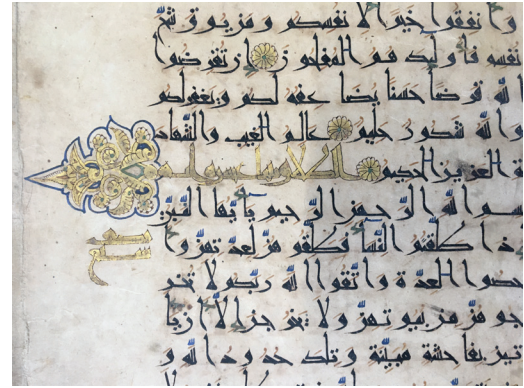 وأنفقوا خيرا لأنفسكم ومن يوق شح
نفسه فأولئك هم المفلحون إن تقرضوا
الله قرضا حسنا يضاعفه لكم ويغفر لكم
والله شكور حليم عالم الغيب والشهاد
ة العزيز الحكيم
بسم الله الرحمن الرحيم يأيها النبي
إذا طلقتم النسا فطلقوهن لعدتهن وأ
حصوا العدة واتقوا الله ربكم لا تخر
جوهن من بيوتهن ولا يخرجن إلا أن يأ
تين بفاحشة مبينة وتلك حدود الله و